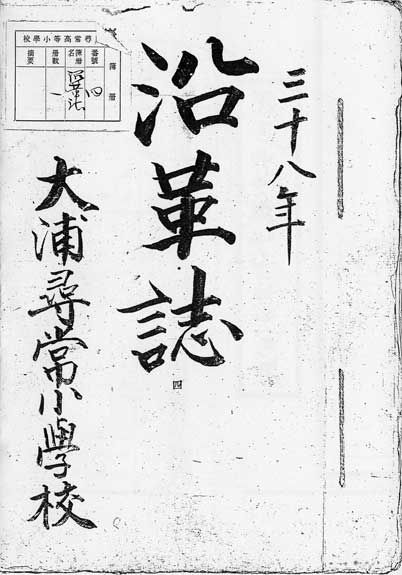 三十八年
沿革誌
四
大浦尋常小學校
尋常高等小學校
簿冊
番號 四
簿冊名
冊數 一
摘要